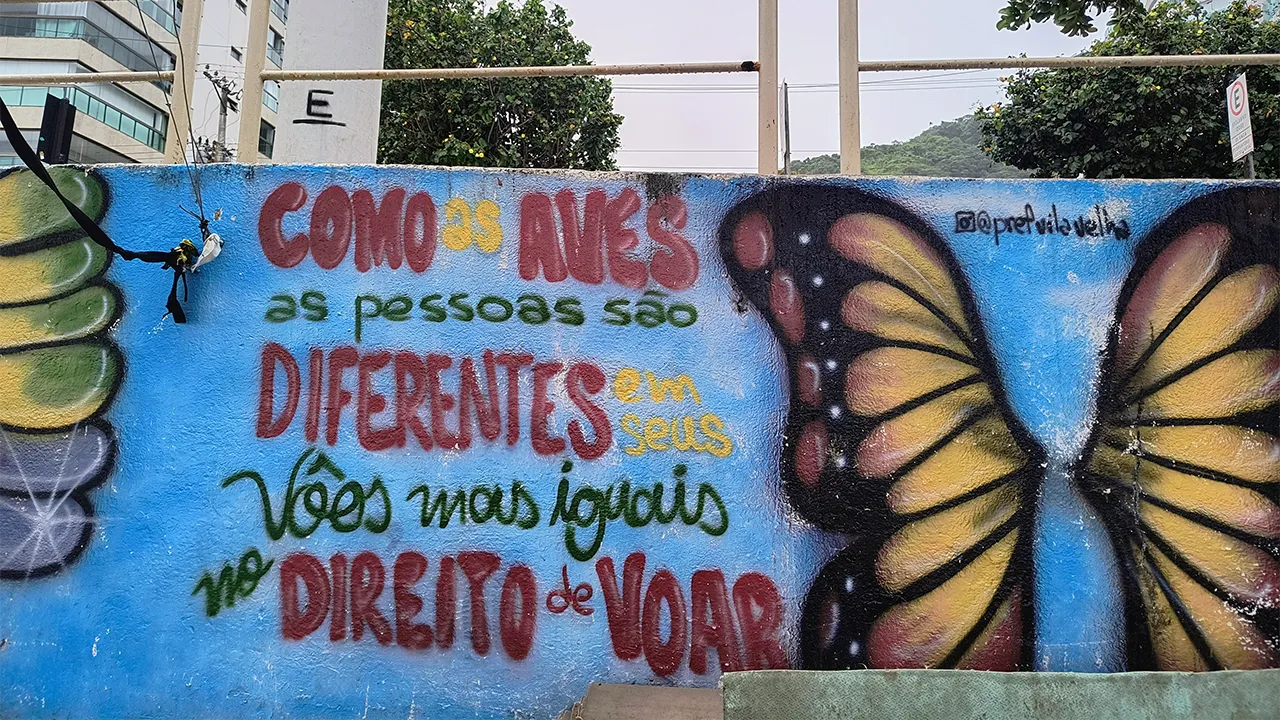 E
E
@prefvilavelha
COMO as AVES
as pessoas são
DIFERENTES em
seus
Vôos mas iguais
no DIREITO de VOAR